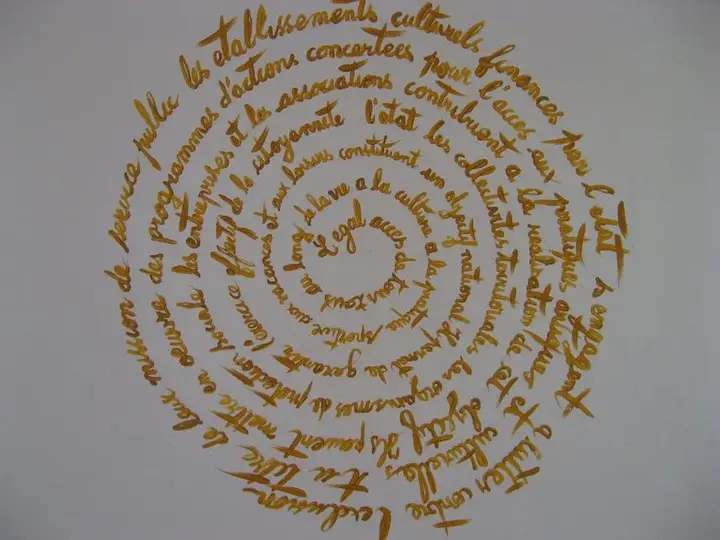 L'egal acces de tous tout au long de la vie a la culture a la pratique sportive aux vacances et aux loisirs constituent un objectif national Il permet de garantir l'exercice effectif de la citoyennete l'etat les collectivites territoriales les organismes de protection sociale les entreprises et les associations contribuent a la realisation de cet objectif Ils peuvent mettre en oeuvre des programmes d'actions concertees pour l'acces aux pratiques artistiques et culturelles Au titre de leur mission de service public les etablissements culturels finances par l'etat s'engagent a lutter contre l'exclusion